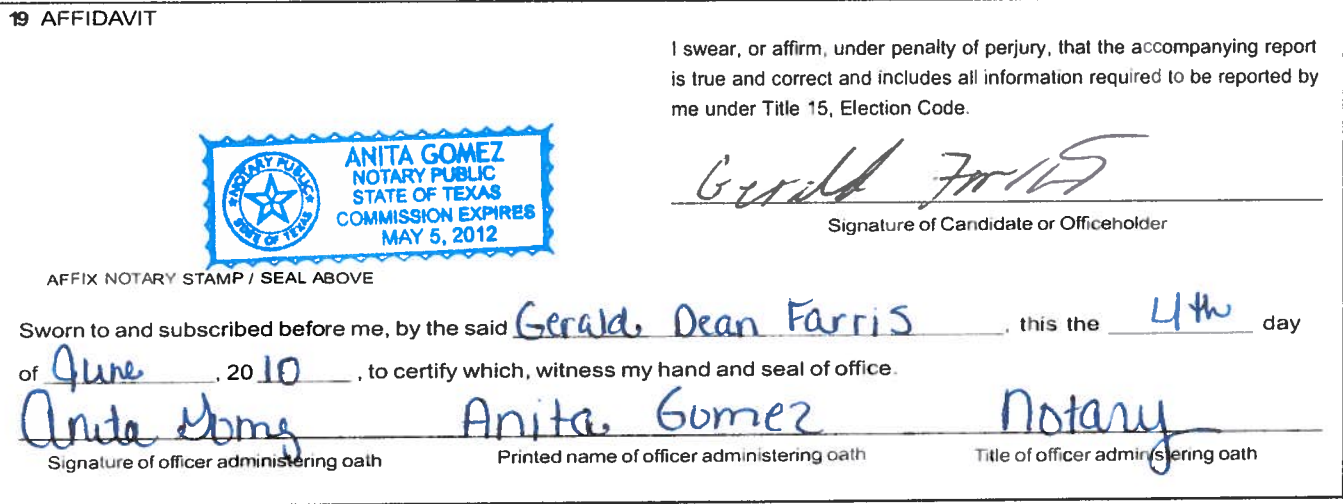 19 AFFIDAVIT
I swear, or affirm, under penalty of perjury, that the accompanying report
is true and correct and includes all information required to be reported by
me under Title 15, Election Code.
NOTARY PUBLIC
STATE OF TEXAS
ANITA GOMEZ
NOTARY PUBLIC
STATE OF TEXAS
COMMISSION EXPIRES
MAY 5, 2012
Gerald Farris
Signature of Candidate or Officeholder
AFFIX NOTARY STAMP / SEAL ABOVE
Sworn to and subscribed before me, by the said Gerald Dean Farris, this the 4th day
of June, 20 10, to certify which, witness my hand and seal of office.
Anita Gomez Anita Gomez Notary
Signature of officer administering oath Printed name of officer administering oath Title of officer administering oath